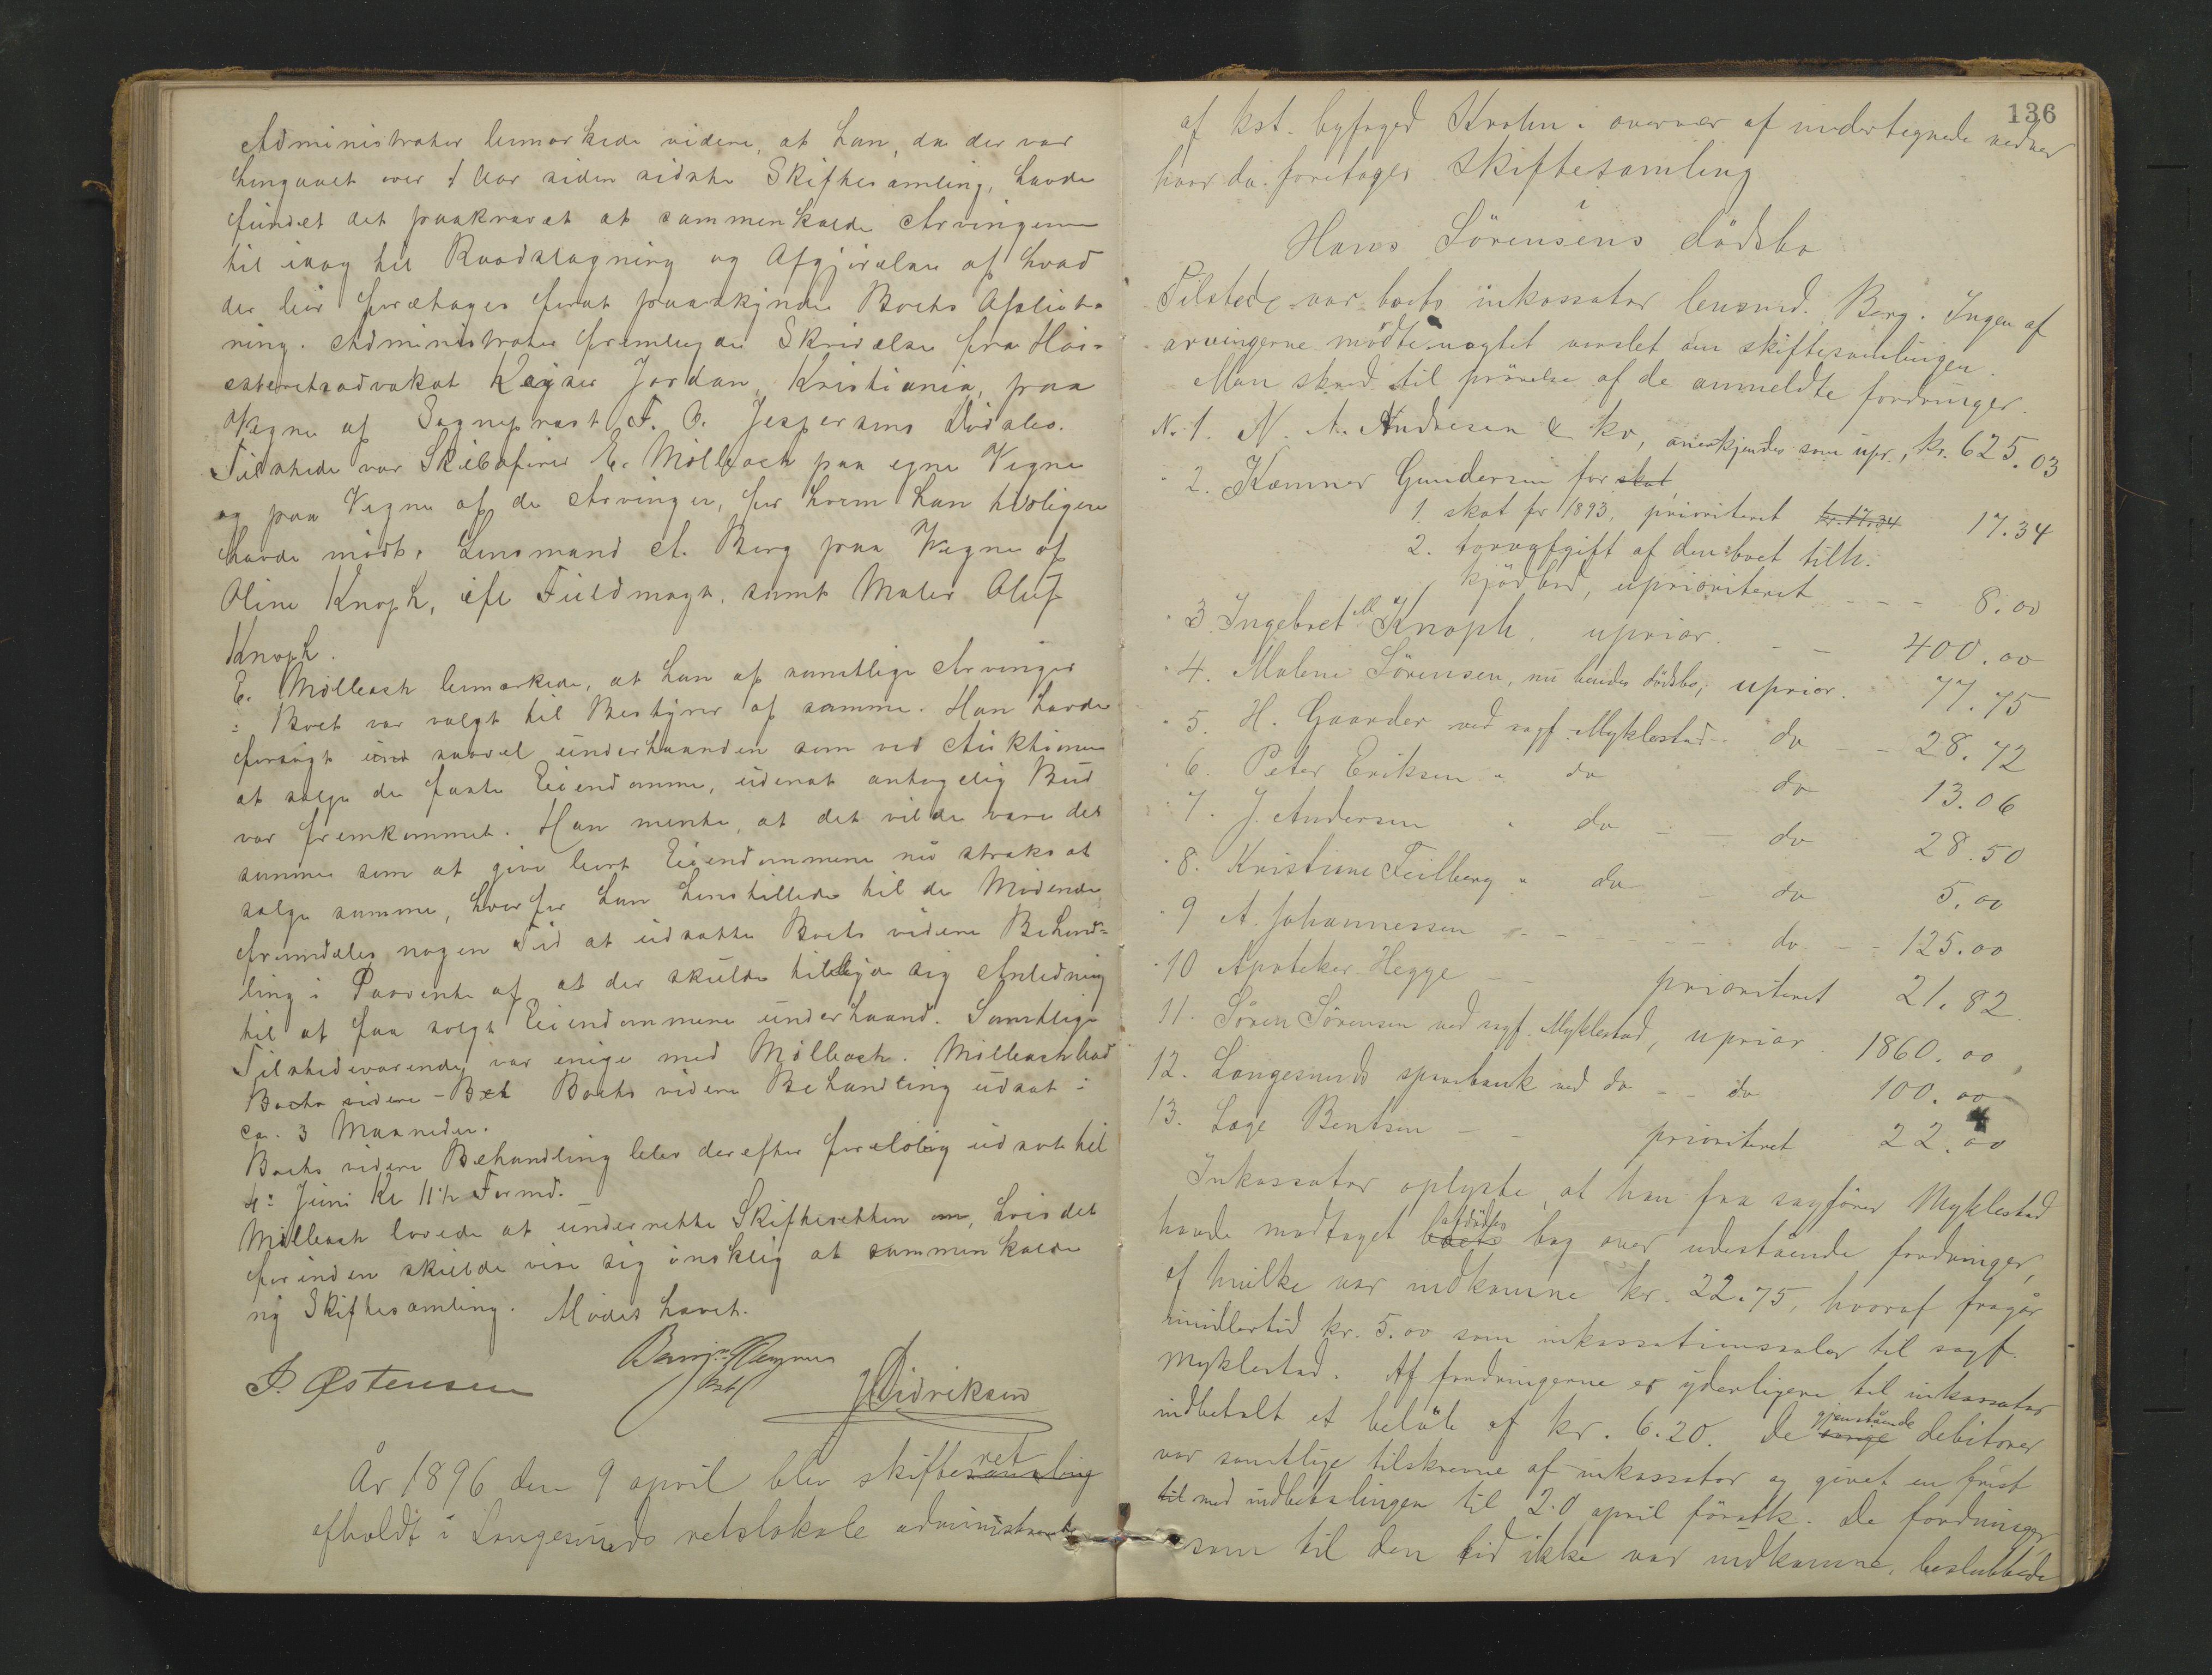 Administrator bemærkede videre, at han, da der var
hengaaet over 1 Aar siden sidste Skiftesamling, havde
fundet det paakrævet at sammenkalde Arvingerne
til idag til Raadslagning og Afgjörelse af hvad
der bör foretages forat paaskynde Boets Afslut=
ning. Administrator fremlagde Skrivelse fra Höi=
esteretsadvokat Keyser Jordan, Kristiania, paa
Vegne af Sogneprest F. C. Jespersens Dödsbo.
Tilstede var Skibsförer E. Mölbach paa egne Vegne
og paa Vegne af de Arvinger, for hvem han tidligere
havde mödt, Lensmand A. Berg paa Vegne af
Oline Knoph, ifl Fuldmagt, samt Maler Oluf
Knoph.
E. Möllbach bemærkede, at han af samtlige Arvinger
i Boet var valgt til Bestyrer af samme. Han havde
forsögt saavel underhaanden som ved Auktioner
at sælge de faste Eiendomme, udenat antagelig Bud
var fremkommet. Han mente, at det vilde være det
samme som at give bort Eiendommene nu straks at
sælge samme, hvorfor han henstillede til de Mödende
fremdeles nogen Tid at udsætte Boets videre Behand=
ling i Paavente af at der skulde tilbyde sig Anledning
til at faa solgt Eiendommene underhaand. Samtlige
Tilstedeværende var enige med Möllbach. Möllbach bad
Boets videre - Beh Boets videre Behandling udsat i
ca. 3 Maaneder.
Boets videre Behandling blev derefter forelöbig udsat til
4: Juni Kl 11½ Formd.
Möllbach lovede at underrette Skifteretten om, hvis det
forinden skulde vise sig önsklig at sammenkalde
ny Skiftesamling. Mödet hævet.
P. Østensen
J Didriksen
År 1896 den 9 april blev skiftesamling ret
afholdt i Langesunds retslokale administreret
136
af kst. byfoged Krohn i overvær af undertegnede vidner
hvor da foretoges skiftesamling
i
Hans Sörensens dödsbo
Tilstede var boets inkassator lensmd. Berg. Ingen af
arvingerne mödte uagtet varslet om skiftesamlingen.
Man skred til prövelse af de anmeldte fordringer.
No 1. N. A. Andresen & ko, anerkjendes som upr., kr. 625.03
2. Kæmner Gundersen for skat
1. skat for 1893, prioriteret kr. 17.34 17.34
2. torvafgift af den boet tilh.
kjödbod, uprioriteret - - - 8.00
3 Ingebret M. Knoph. uprior. - - 400.00
4. Malene Sörensen, nu hendes dödsbo, uprior. 77.75
5. H. Gaarder ved sagf. Myklestad - do - - 28.72
6. Peter Eriksen " do do 13.06
7. J. Andersen " do - - do 28.50
8. Kristiane Feilberg " do - do 5.00
9 A. Johannessen - - - - - - do - - 125.00
10 Apoteker Hegge - - prioriteret 21.82
11. Sören Sörensen ved sagf. Myklestad, uprior. 1860.00
12. Langesunds sparebank ved do - - do 100.00
13. Læge Bentsen - - prioriteret 22.00
Inkassator oplyste, at han fra sagförer Myklestad
havde modtaget boets afdödes bog over udestående fordringer,
af hvilke var indkomne kr. 22.75, hvoraf fragår
imidlertid kr. 5.00 som inkassationssalær til sagf.
Myklestad. Af fordringerne er yderligere til inkassator
indbetalt et belöb af kr. 6.20. De övrige gjenstående debitorer
var samtlige tilskrevne af inkassator og givet en frist
til med indbetalingen til 20 april förstk. De fordringer
som til den tid ikke var indkomne, besluttede